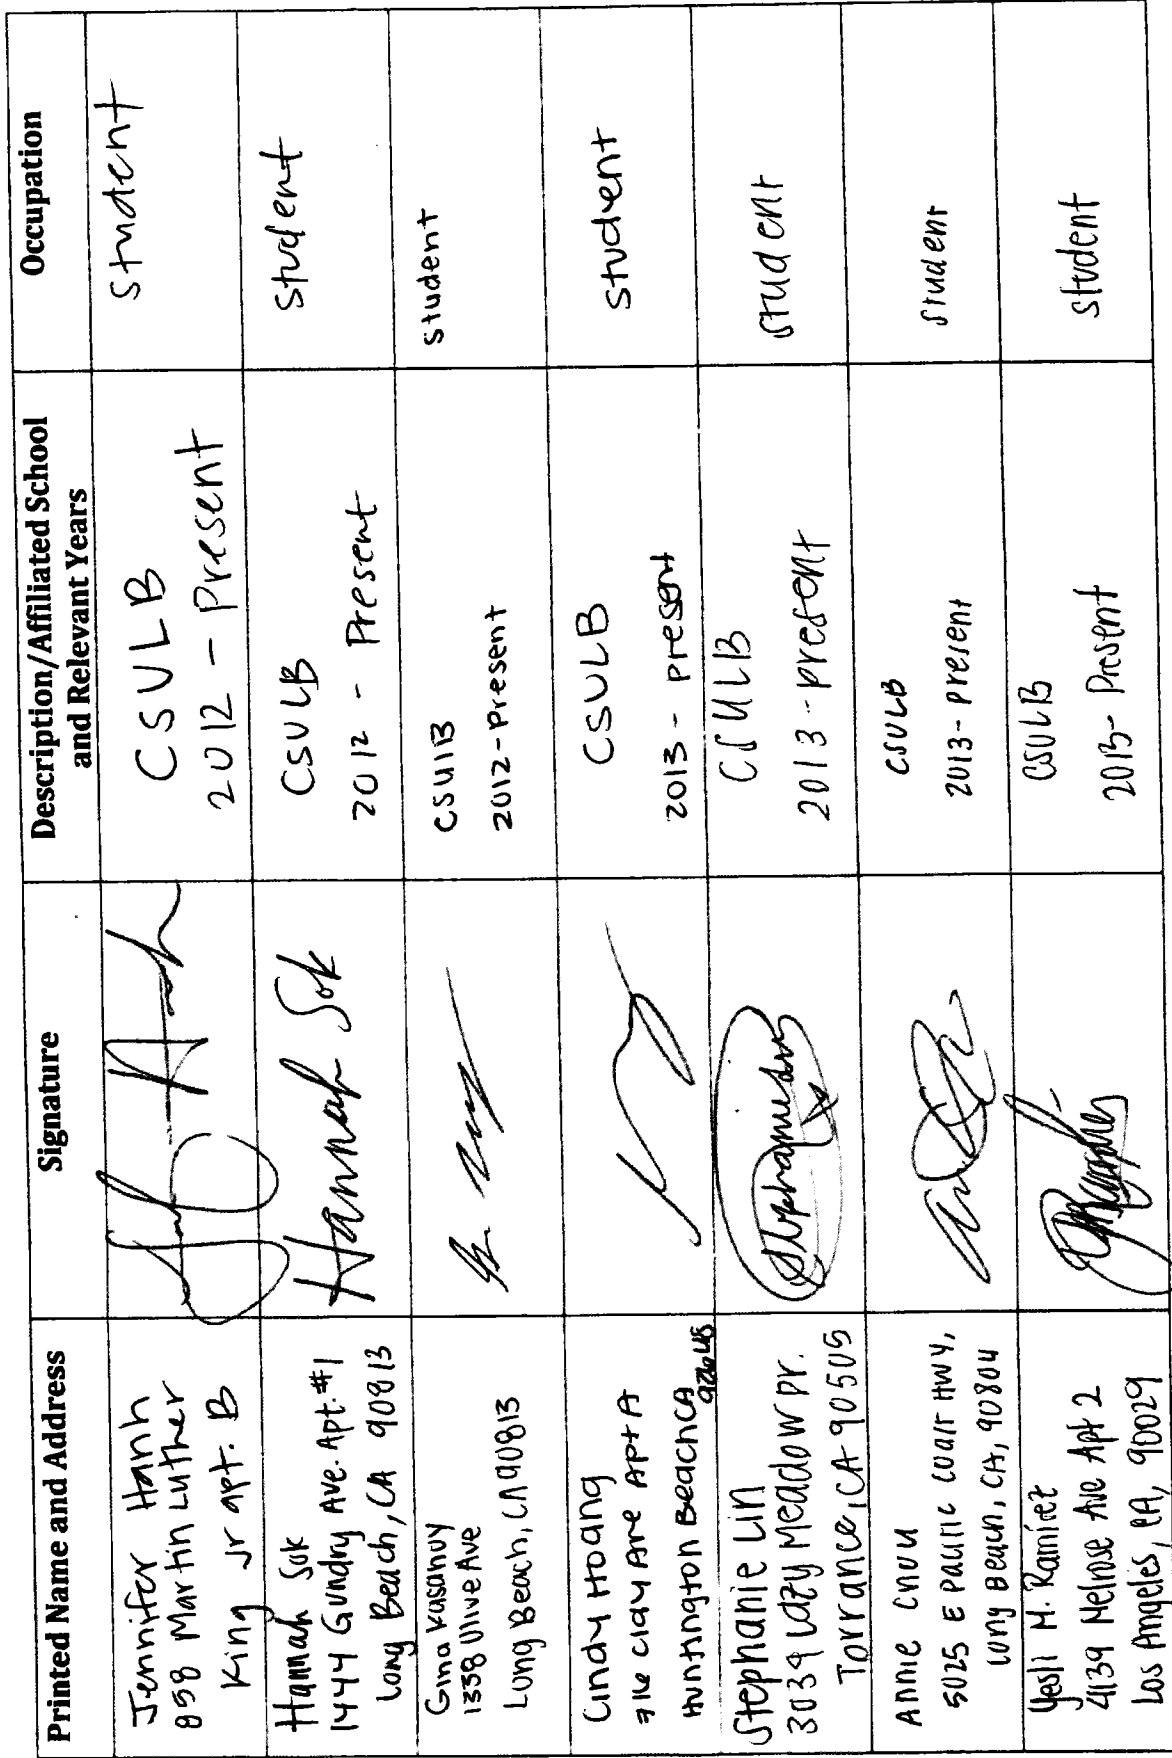 Printed Name and Address
Signature
Description/Affiliated School
and Relevant Years
Occupation
Jennifer Hanh
858 Martin Luther
King Jr apt. B
CSULB
2012 - Present
Student
Hannah Sok
1444 Gundry Ave. Apt. #1
Long Beach, CA 90813
Hannah Sok
CSULB
2012 - Present
Student
Gina Kasanuy
1338 Olive Ave
Long Beach, CA 90813
CSULB
2012-Present
student
Cindy Hoang
Clay Ave Apt A
Huntington Beach CA
92648
CSULB
2013 - present
student
Stephanie Lin
3039 Lazy Meadow Dr.
Torrance, CA 90505
CSULB
2013 - present
student
Annie Chuu
5025 E Pacific Coast Hwy,
Long Beach, CA, 90804
CSULB
2013 - present
student
Yesli M. Ramirez
4139 Melrose Ave Apt 2
Los Angeles, CA, 90029
CSULB
2013 - Present
student